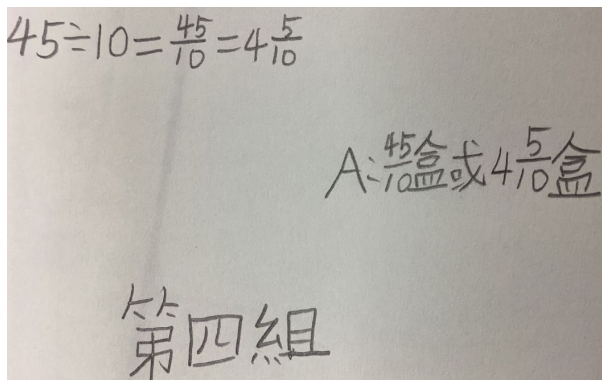 45÷10=45/10=4 5/10
A:45/10盒或4 5/10盒
第四組